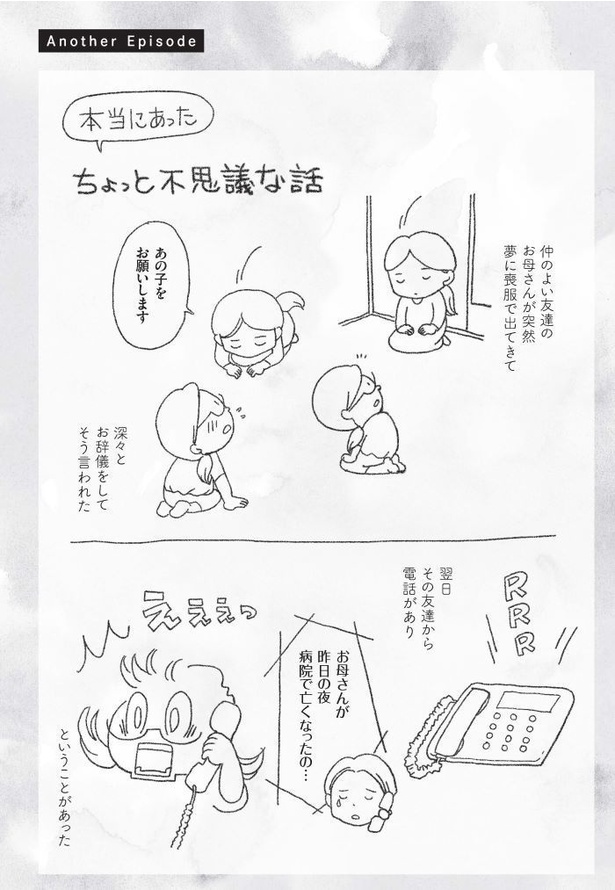 Another Episode
本当にあった
ちょっと不思議な話
仲のよい友達の
お母さんが突然
夢に喪服で出てきて
あの子を
お願いします
深々と
お辞儀をして
そう言われた
RRR
翌日
その友達から
電話があり
お母さんが
昨日の夜
病院で亡くなったの…
えええっ
ということがあった